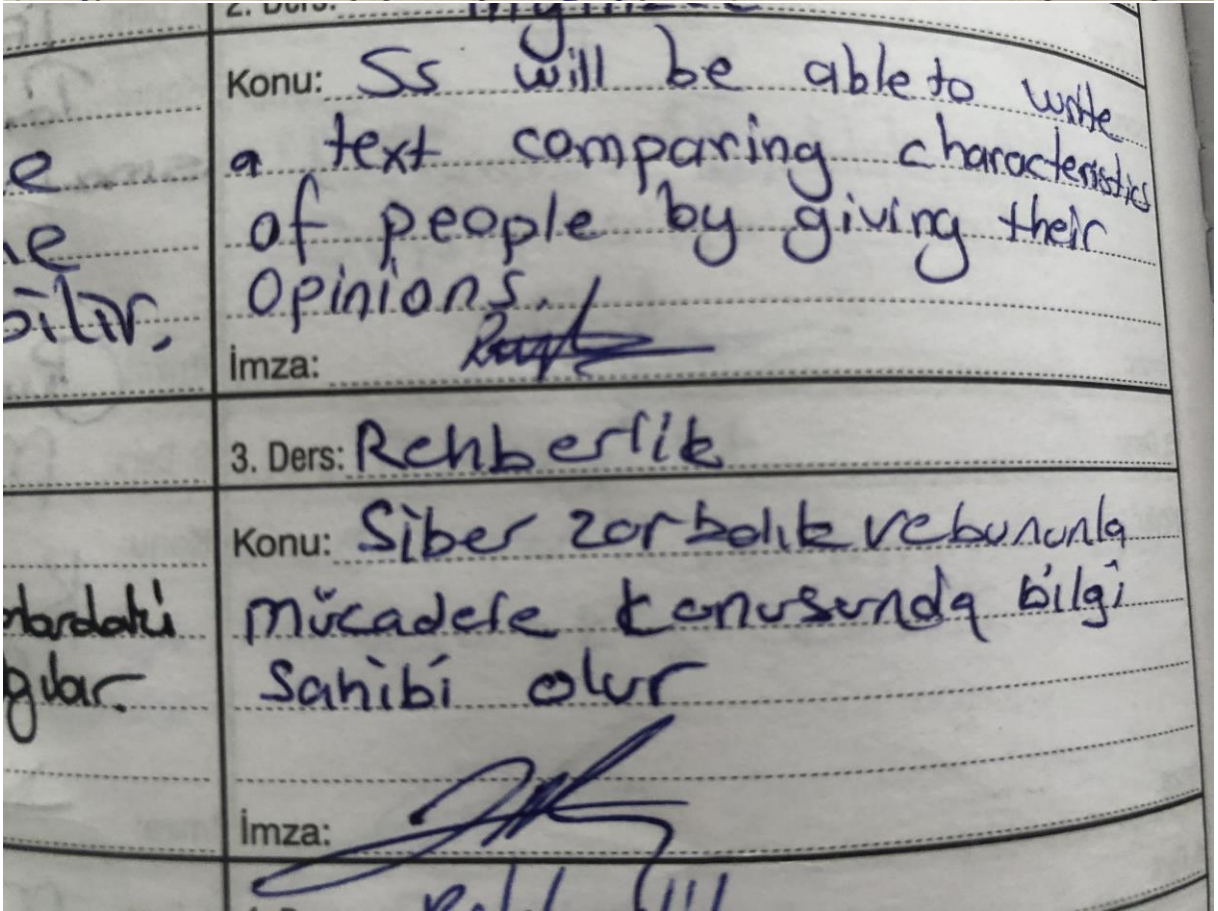 2. Ders: İngilizce
Konu: Ss will be able to write
a text comparing characteristics
of people by giving their
opinions.
İmza:
3. Ders: Rehberlik
Konu: Siber zorbalık ve bununla
mücadele konusunda bilgi
sahibi olur
İmza: